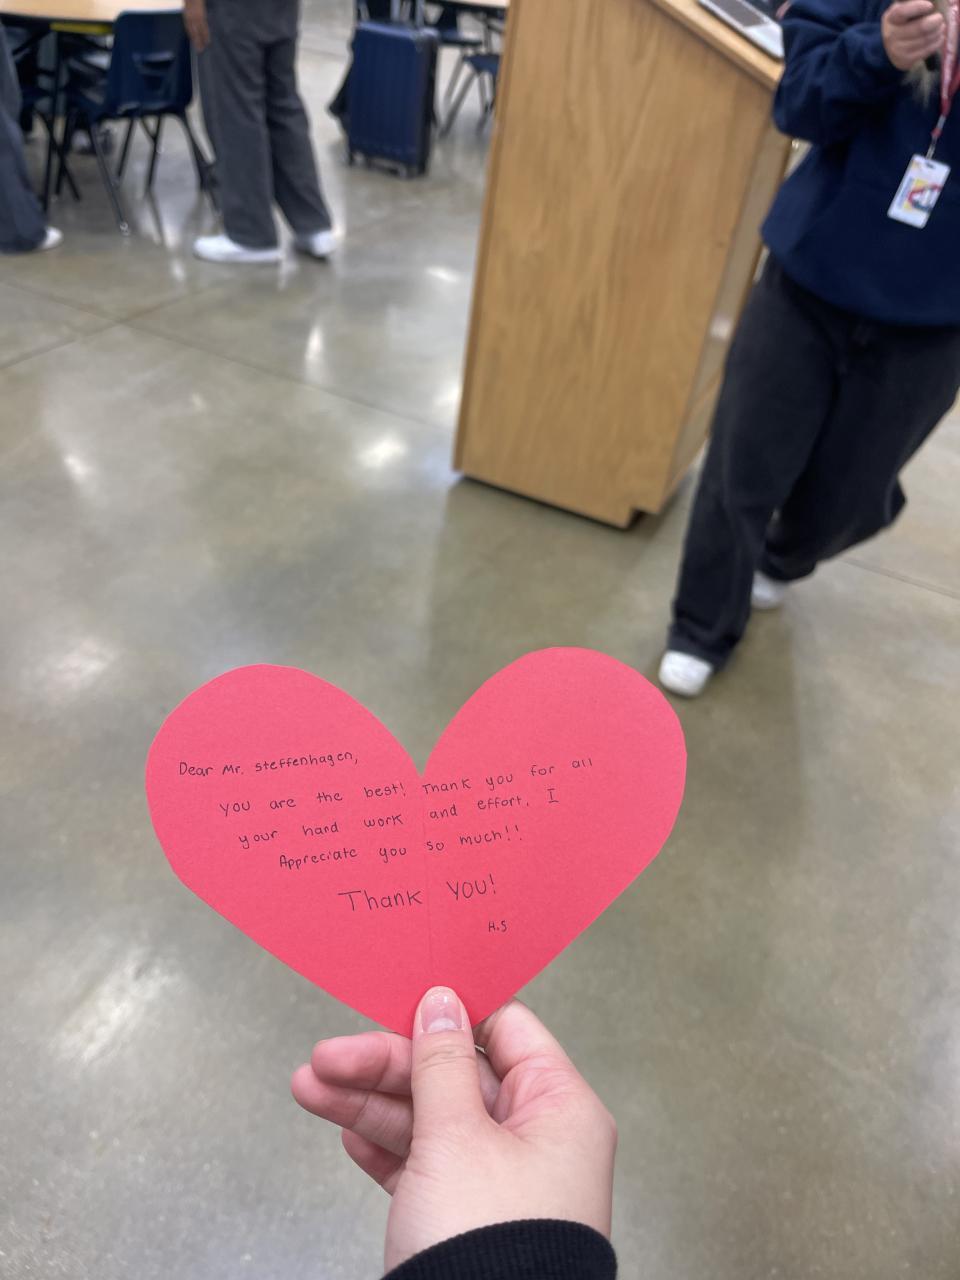 Dear Mr. steffenhagen,
you are the best! Thank you for all
your hard work and effort. I
Appreciate you so much!!
Thank YOU!
H.S